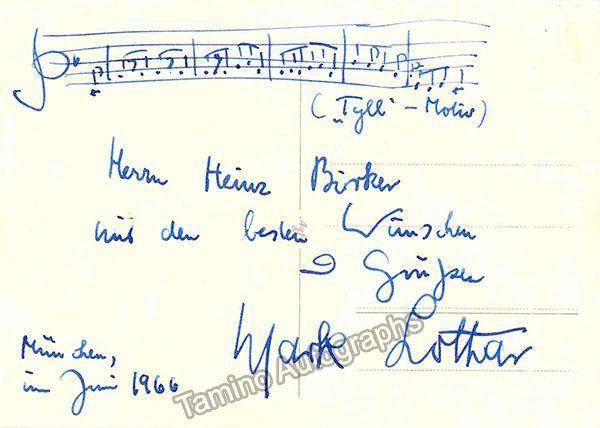 ("Tyll" - Motiv)
Herrn Heinz Birker
mit den besten Wünschen
& Grüßen
Mark Lothar
München,
im Juni 1966
Tamino Autographs